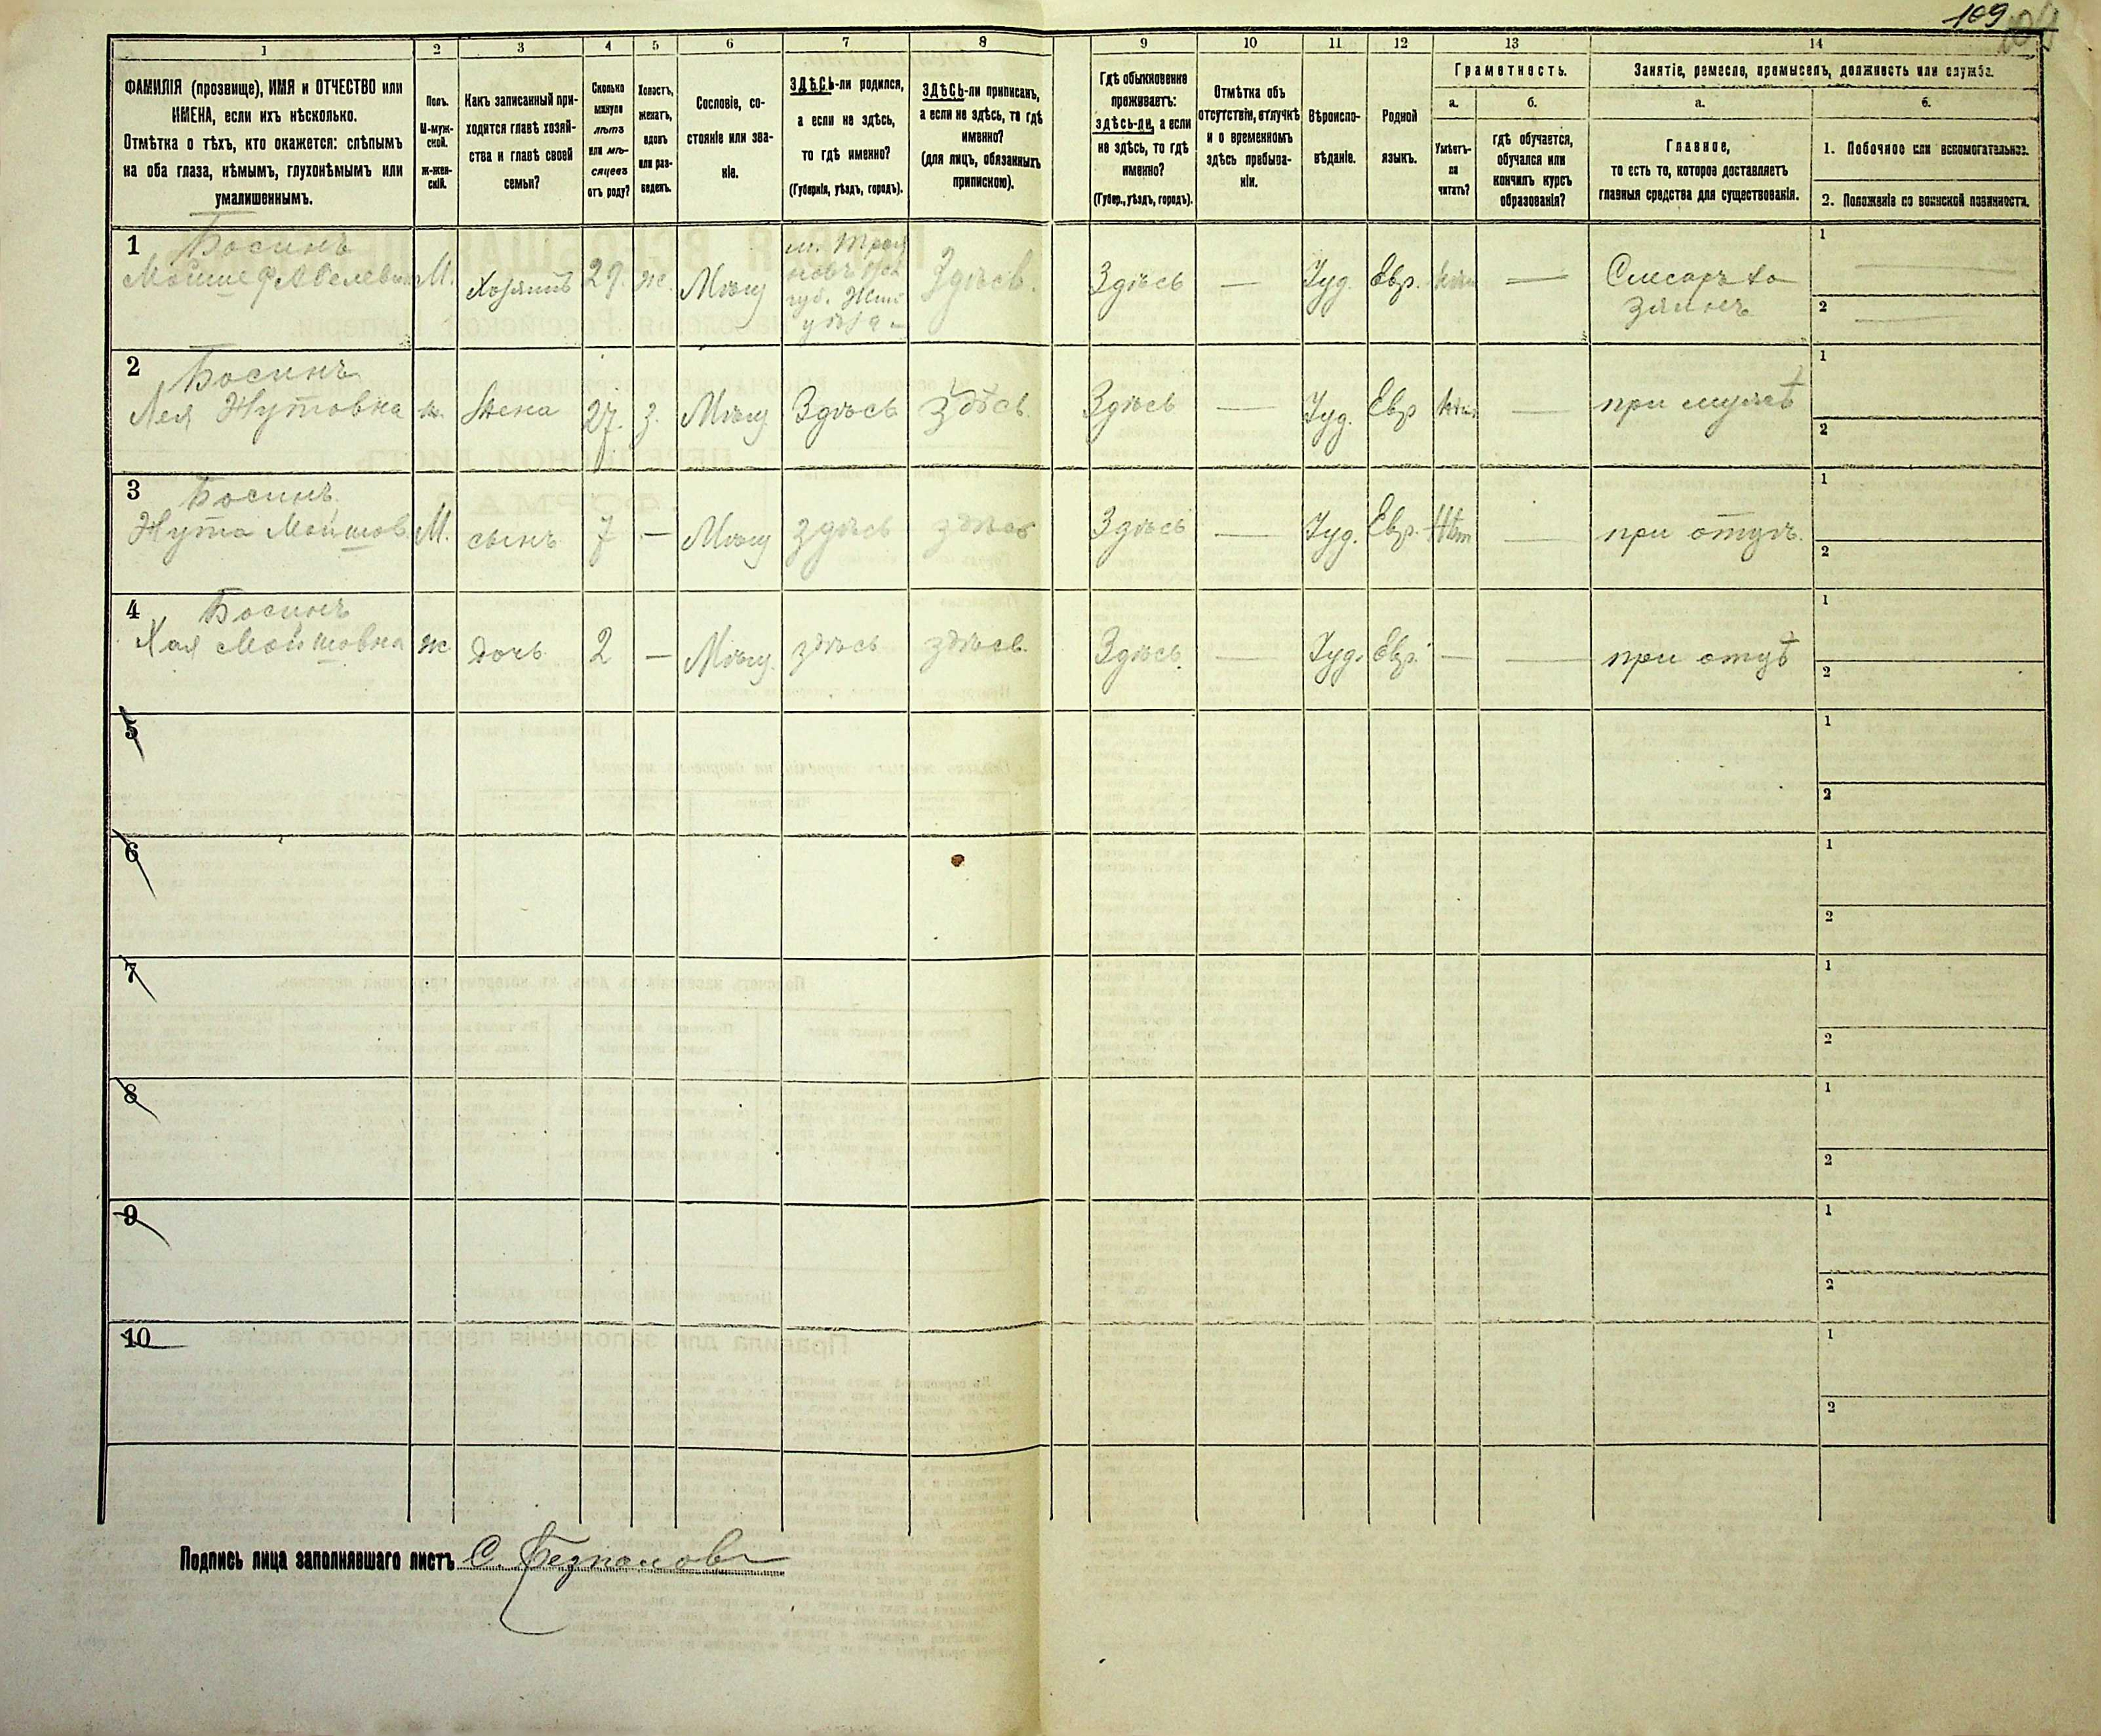 109
1 2 3 4 5 6 7 8 9 10 11 12 13 14
ФАМИЛІЯ (прозвище), ИМЯ и ОТЧЕСТВО или
ИМЕНА, если ихъ нѣсколько.
Отмѣтка о тѣхъ, кто окажется: слѣпымъ
на оба глаза, нѣмымъ, глухонѣмымъ или
умалишеннымъ.
Полъ.
М-муж-
ской.
Ж-жен-
скій.
Какъ записанный при-
ходится главѣ хозяй-
ства и главѣ своей
семьи?
Сколько
минуло
лѣтъ
или мѣ-
сяцевъ
отъ роду?
Холостъ,
женатъ,
вдовъ
или раз-
веденъ.
Сословіе, со-
стояніе или зва-
ніе.
ЗДѢСЬ-ли родился,
а если не здѣсь,
то гдѣ именно?
(Губернія, уѣздъ, городъ).
ЗДѢСЬ-ли приписанъ,
а если не здѣсь, то гдѣ
именно?
(для лицъ, обязанныхъ
припискою).
Гдѣ обыкновенно
проживаетъ:
здѣсь-ли, а если
не здѣсь, то гдѣ
именно?
(Губер., уѣздъ, городъ).
Отмѣтка объ
отсутствіи, отлучкѣ
и о временномъ
здѣсь пребыва-
ніи.
Вѣроиспо-
вѣданіе.
Родной
языкъ.
Грамотность.
а.
Умѣетъ-
ли
читать?
б.
гдѣ обучается,
обучался или
кончилъ курсъ
образованія?
Занятіе, ремесло, промыселъ, должность или служба.
а.
Главное,
то есть то, которое доставляетъ
главныя средства для существованія.
б.
1. Побочное или вспомогательное.
2. Положеніе по воинской повинности.
1 Босинъ
Мойше Абелевичъ М. Хозяинъ 29. ж. Мѣщ Здѣсь. Здѣсь — Іуд. Евр. — Слесарь
1
2
2 Босинъ
Лея Нутовна ж. Жена 27. з. Мѣщ. Здѣсь Здѣсь Здѣсь — Іуд. Евр — при мужѣ
1
2
3 Босинъ
Нута Мойшов. М. сынъ 7 — Мѣщ здѣсь здѣсь Здѣсь — Іуд. Евр. Нѣт — при отцѣ.
1
2
4 Босинъ
Хая Мойшовна ж дочь 2 — Мѣщ. здѣсь здѣсь. Здѣсь. — Іуд. Евр. — — при отцѣ
1
2
5
1
2
6
1
2
7
1
2
8
1
2
9
1
2
10
1
2
Подпись лица заполнявшаго листъ С.